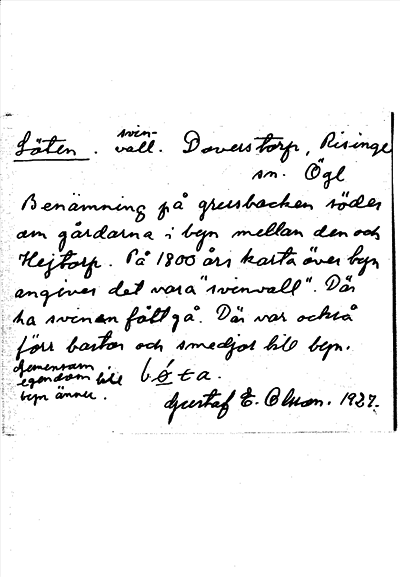 Löten. svin-
vall. Daverstorp, Risinge
sn. Ögl
Benämning på grusbacken söder
om gårdarna i byn mellan den och
Hejtorp. På 1800 års karta över byn
angives det vara "svinvall". Där
ha svinen fått gå. Där var också
förr bastor och smedjor till byn.
Gemensam
egendom till
byn ännu.
Gustaf E. Olson. 1927.